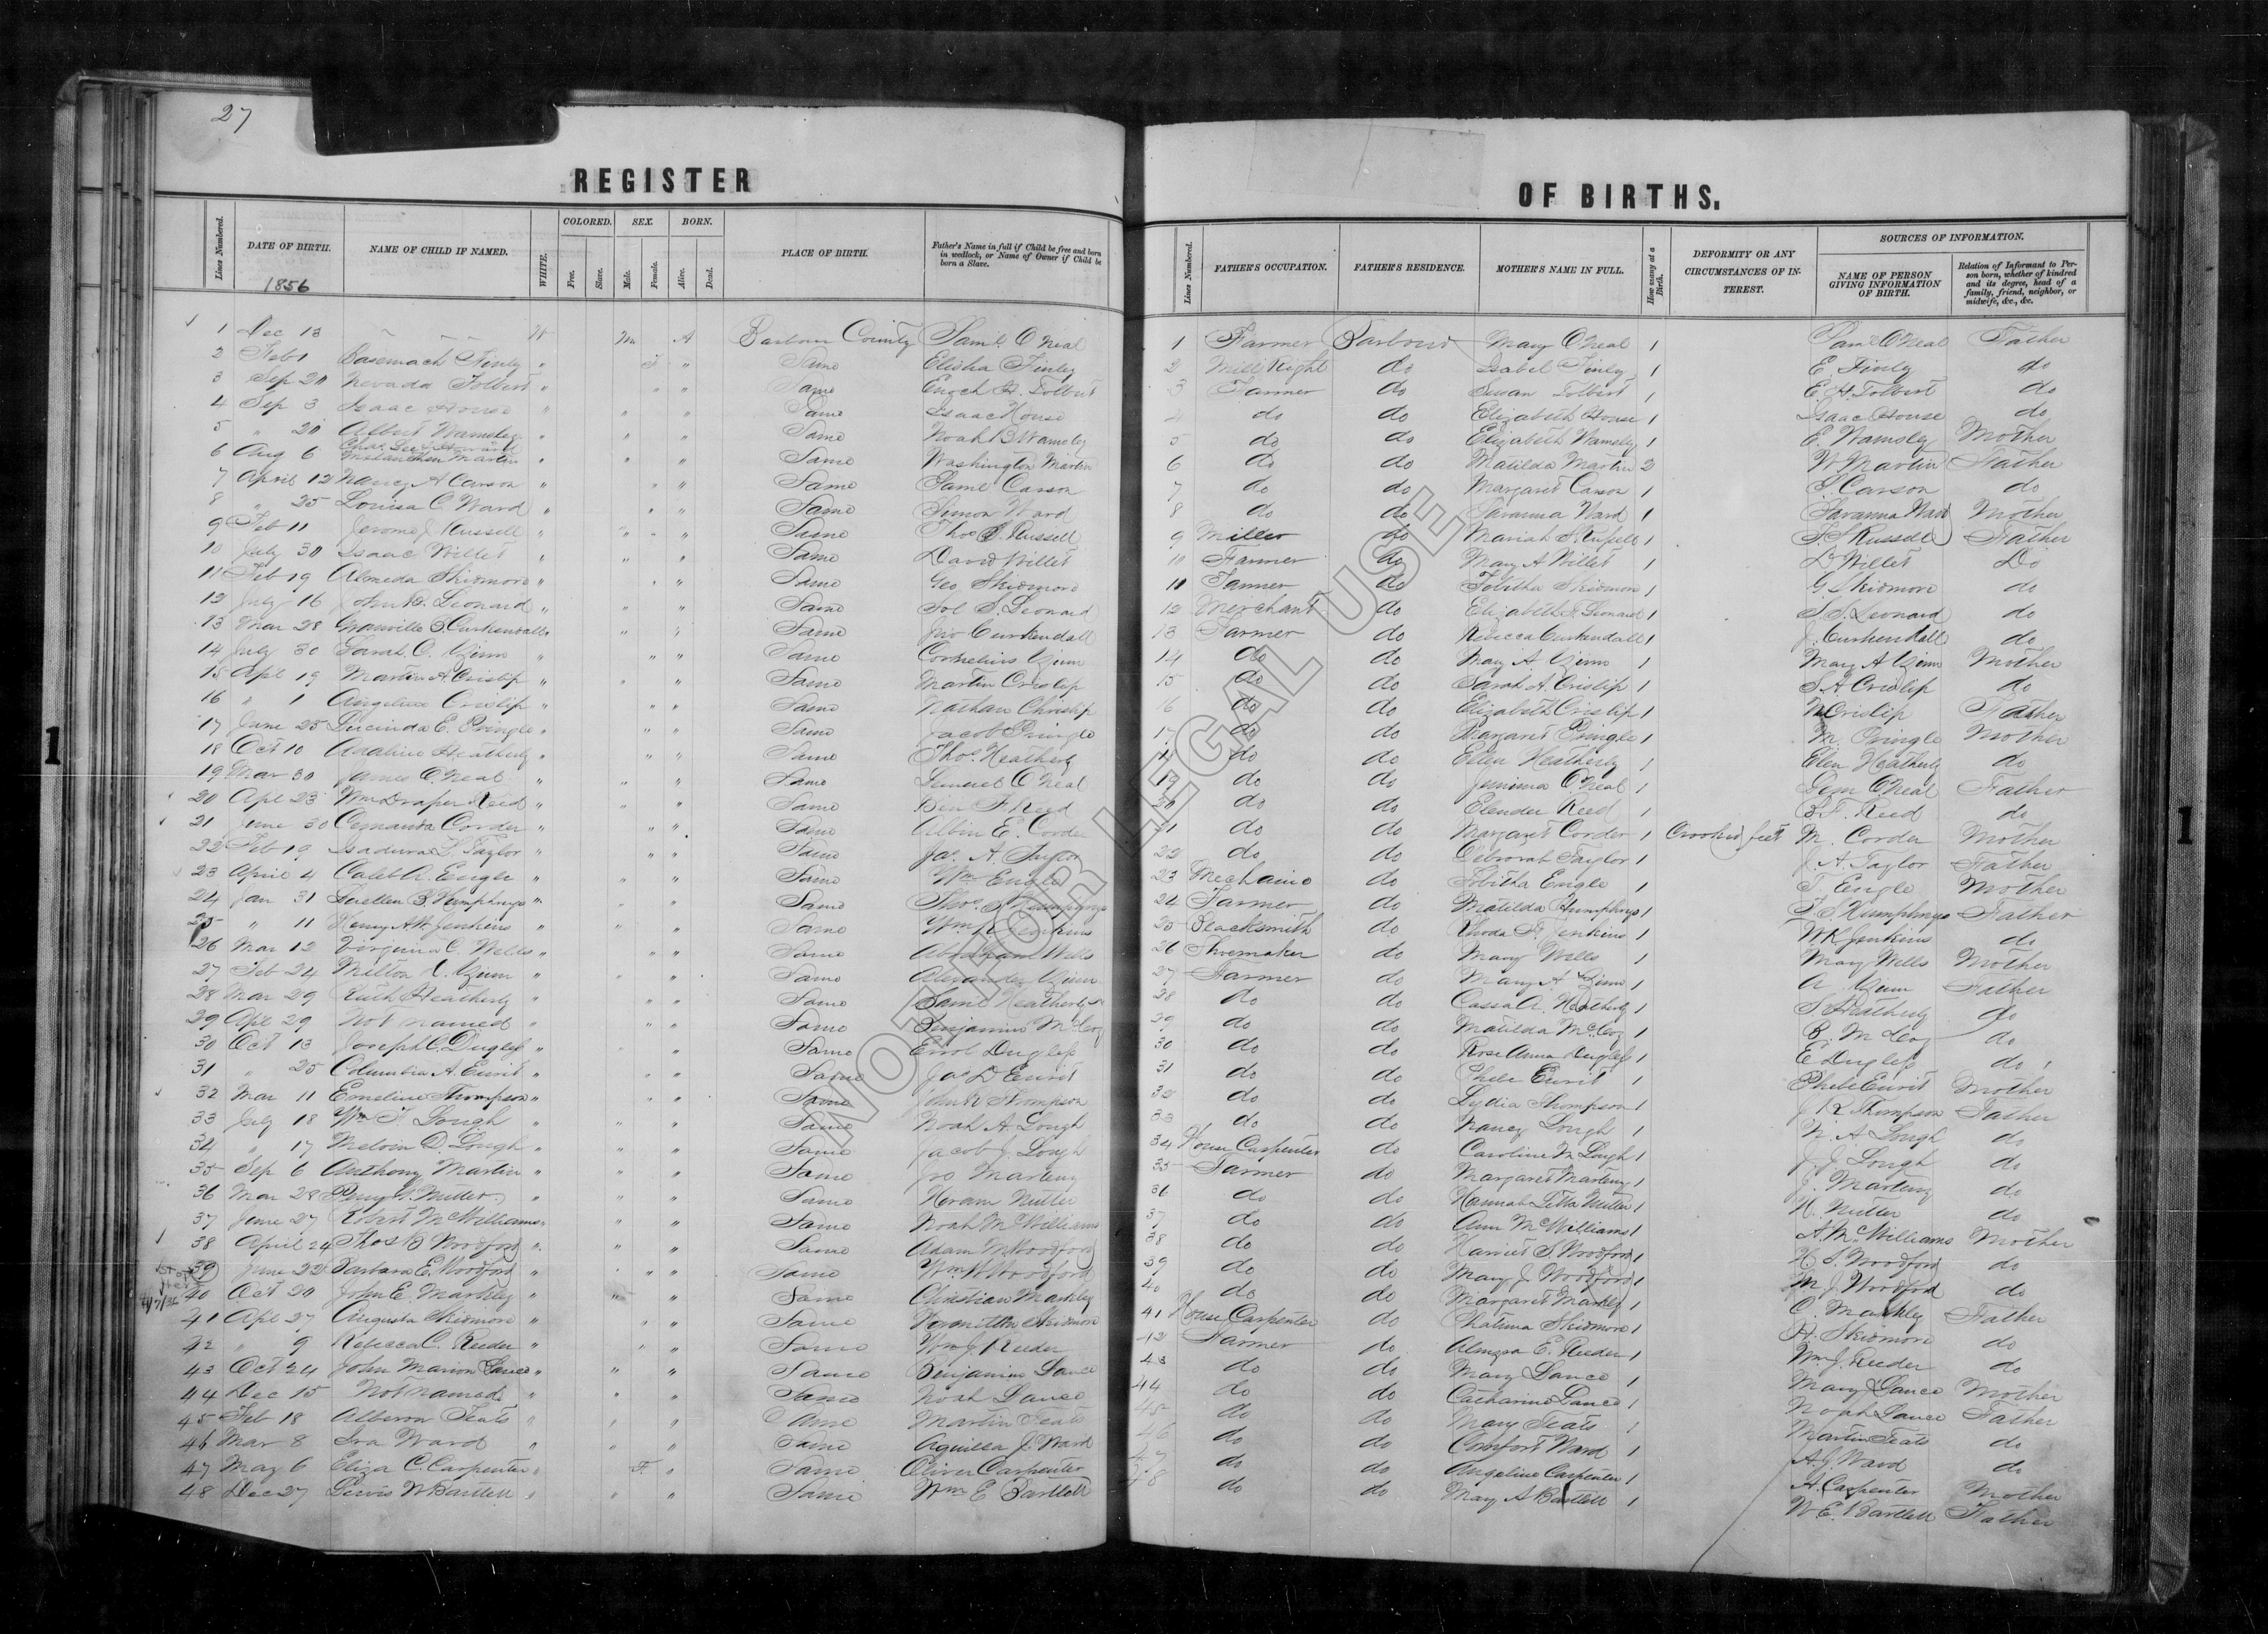 27
REGISTER OF BIRTHS.
Lines Numbered. DATE OF BIRTH. NAME OF CHILD IF NAMED. WHITE. COLORED. Free. Slave. SEX. Male. Female. BORN. Alive. Dead. PLACE OF BIRTH. Father's Name in full if Child be free and born in wedlock, or Name of Owner if Child be born a Slave. Lines Numbered. FATHER'S OCCUPATION. FATHER'S RESIDENCE. MOTHER'S NAME IN FULL. How many at a Birth. DEFORMITY OR ANY CIRCUMSTANCES OF INTEREST. SOURCES OF INFORMATION. NAME OF PERSON GIVING INFORMATION OF BIRTH. Relation of Informant to Person born, whether of kindred and its degree, head of a family, friend, neighbor, or midwife, &c., &c.
1856
1 Dec 13 - - - W M A Barbour County Saml O Neal 1 Farmer Barbour Mary O Neal 1 Saml O Neal Father
2 Feb 1 Finley " F " Same Elisha Finley 2 Mill Right do Isabel Finley 1 E. Finley do
3 Sep 20 Nevada Tolbert " " " Same Enoch H. Tolbert 3 Farmer do Susan Tolbert 1 E. H. Tolbert do
4 Sep 3 Isaac House " " " Same Isaac House 4 do do Elizabeth House 1 Isaac House do
5 " 20 Albert Wamsley " " " Same Noah B Wamsley 5 do do Elizabeth Wamsley 1 E. Wamsley Mother
6 Aug 6 Martin " " " Same Washington Martin 6 do do Matilda Martin 2 W Martin Father
7 April 12 Nancy A Carson " " " Same Saml Carson 7 do do Margaret Carson 1 S. Carson do
8 " 25 Louisa C Ward " " " Same Simon Ward 8 do do Savanna Ward 1 Savanna Ward Mother
9 Feb 11 Jerome J Russell " " " Same Thos S. Russell 9 Miller do Mariah S Russell 1 T. S Russell Father
10 July 30 Isaac Willet " " " Same David Willet 10 Farmer do Mary A Willet 1 D Willet Do
11 Feb 19 Almeda Skidmore " " " Same Geo Skidmore 11 Tanner do Tobitha Skidmore 1 G. Skidmore do
12 July 16 John B. Leonard " " " Same Sol S. Leonard 12 Merchant do Elizabeth Leonard 1 S. S. Leonard do
13 Mar 28 Granville B. Curkendall " " " Same Jno Curkendall 13 Farmer do Rebecca Curkendall 1 J. Curkendall do
14 July 30 Sarah C. Zinn " " " Same Cornelius Zinn 14 do do Mary A Zinn 1 Mary A Zinn Mother
15 Apl 19 Martin A. Crislip " " " Same Martin Crislip 15 do do Sarah A. Crislip 1 S. A Crislip do
16 " 1 Angeline Crislip " " " Same Nathan Chrislip 16 do do Elizabeth Crislip 1 N Crislip Father
17 June 25 Lucinda E. Pringle " " " Same Jacob Pringle 17 do do Margaret Pringle 1 M. Pringle Mother
18 Oct 10 Adaline Heatherly " " " Same Thos. Heatherly 18 do do Ellen Heatherly 1 Elen Heatherly do
19 Mar 30 James O. Neal " " " Same O Neal 19 do do Jemima O Neal 1 O Neal Father
20 Apl 23 Wm Draper Reed " " " Same Ben F. Reed 20 do do Elender Reed 1 B. F. Reed do
21 June 30 Corder " " " Same Albin E. Corder 21 do do Margaret Corder 1 Crooked feet M. Corder Mother
22 Feb 19 Isadura L. Taylor " " " Same Jas. A. Taylor 22 do do Deborah Taylor 1 J. A. Taylor Father
23 April 4 Caleb A. Engle " " " Same Wm Engle 23 Mechanic do Tobitha Engle 1 T. Engle Mother
24 Jan 31 B. Humphrys " " " Same Thos. S Humphrys 24 Farmer do Matilda Humphrys 1 T. S. Humphrys Father
25 " 11 Henry A. W. Jenkins " " " Same Wm R. Jenkins 25 Blacksmith do Rhoda Jenkins 1 W. R. Jenkins do
26 Mar 12 Virginia C. Wells " " " Same Abraham Wells 26 Shoemaker do Mary Wells 1 Mary Wells Mother
27 Feb 24 Milton Zinn " " " Same Alexander Zinn 27 Farmer do Mary A Zinn 1 A. Zinn Father
28 Mar 29 Ruth Heatherly " " " Same Saml Heatherly 28 do do Cassa A. Heatherly 1 S Heatherly do
29 Apl 29 Not named " " " Same Benjamin McCoy 29 do do Matilda McCoy 1 B. McCoy do
30 Oct 13 Joseph C. Dugless " " Same Dugless 30 do do Rose Anna Dugless 1 E Dugless do
31 " 25 Columbia A. Eurit " " " Same Jas D Eurit 31 do do Phebe Eurit 1 Phebe Eurit Mother
32 Mar 11 Emeline Thompson " " " Same John R Thompson 32 do do Lydia Thompson 1 J. R. Thompson Father
33 July 18 Wm F Lough " " " Same Noah A Lough 33 do do Nancy Lough 1 N. A. Lough do
34 " 17 Melvin D. Lough " " " Same Jacob J. Lough 34 House Carpenter do Caroline M Lough 1 J. J. Lough do
35 Sep 6 Anthony Martin " " " Same Jos Marteny 35 Farmer do Margaret Marteny 1 J. Marteny do
36 Mar 28 Perry G. Nutter " " " Same Hiram Nutter 36 do do Hannah Nutter 1 H. Nutter do
37 June 27 Robert McWilliams " " " Same Noah McWilliams 37 do do Ann McWilliams 1 A. McWilliams Mother
38 April 24 Thos B Woodford " " " Same Adam M. Woodford 38 do do Harriet S. Woodford 1 H. S. Woodford do
39 June 22 Barbara E. Woodford " " " Same Wm W Woodford 39 do do Mary J Woodford 1 M. J. Woodford do
40 Oct 20 John E. Markley " " " Same Christian Markley 40 do do Margaret Markley 1 C. Markley Father
41 Apl 27 Augusta Skidmore " " " Same Skidmore 41 House Carpenter do Skidmore 1 H. Skidmore do
42 " 9 Rebecca C. Reeder " " " Same Wm J. Reeder 42 Farmer do Almyra E. Reeder 1 Wm J. Reeder do
43 Oct 24 John Marion Lance " " " Same Benjamin Lance 43 do do Mary Lance 1 Mary Lance Mother
44 Dec 15 Not named " " " Same Noah Lance 44 do do Catharine Lance 1 Noah Lance Father
45 Feb 18 Teats " " " Same Martin Teats 45 do do Mary Teats 1 Martin Teats do
46 Mar 8 Ira Ward " " " Same Aquilla J. Ward 46 do do Comfort Ward 1 A. J. Ward do
47 May 6 Eliza C. Carpenter " F. " Same Oliver Carpenter 47 do do Angeline Carpenter 1 A. Carpenter Mother
48 Dec 27 Lewis W Bartlett " " " Same Wm E Bartlett 48 do do Mary A Bartlett 1 W. E. Bartlett Father
NOT FOR LEGAL USE
1
1